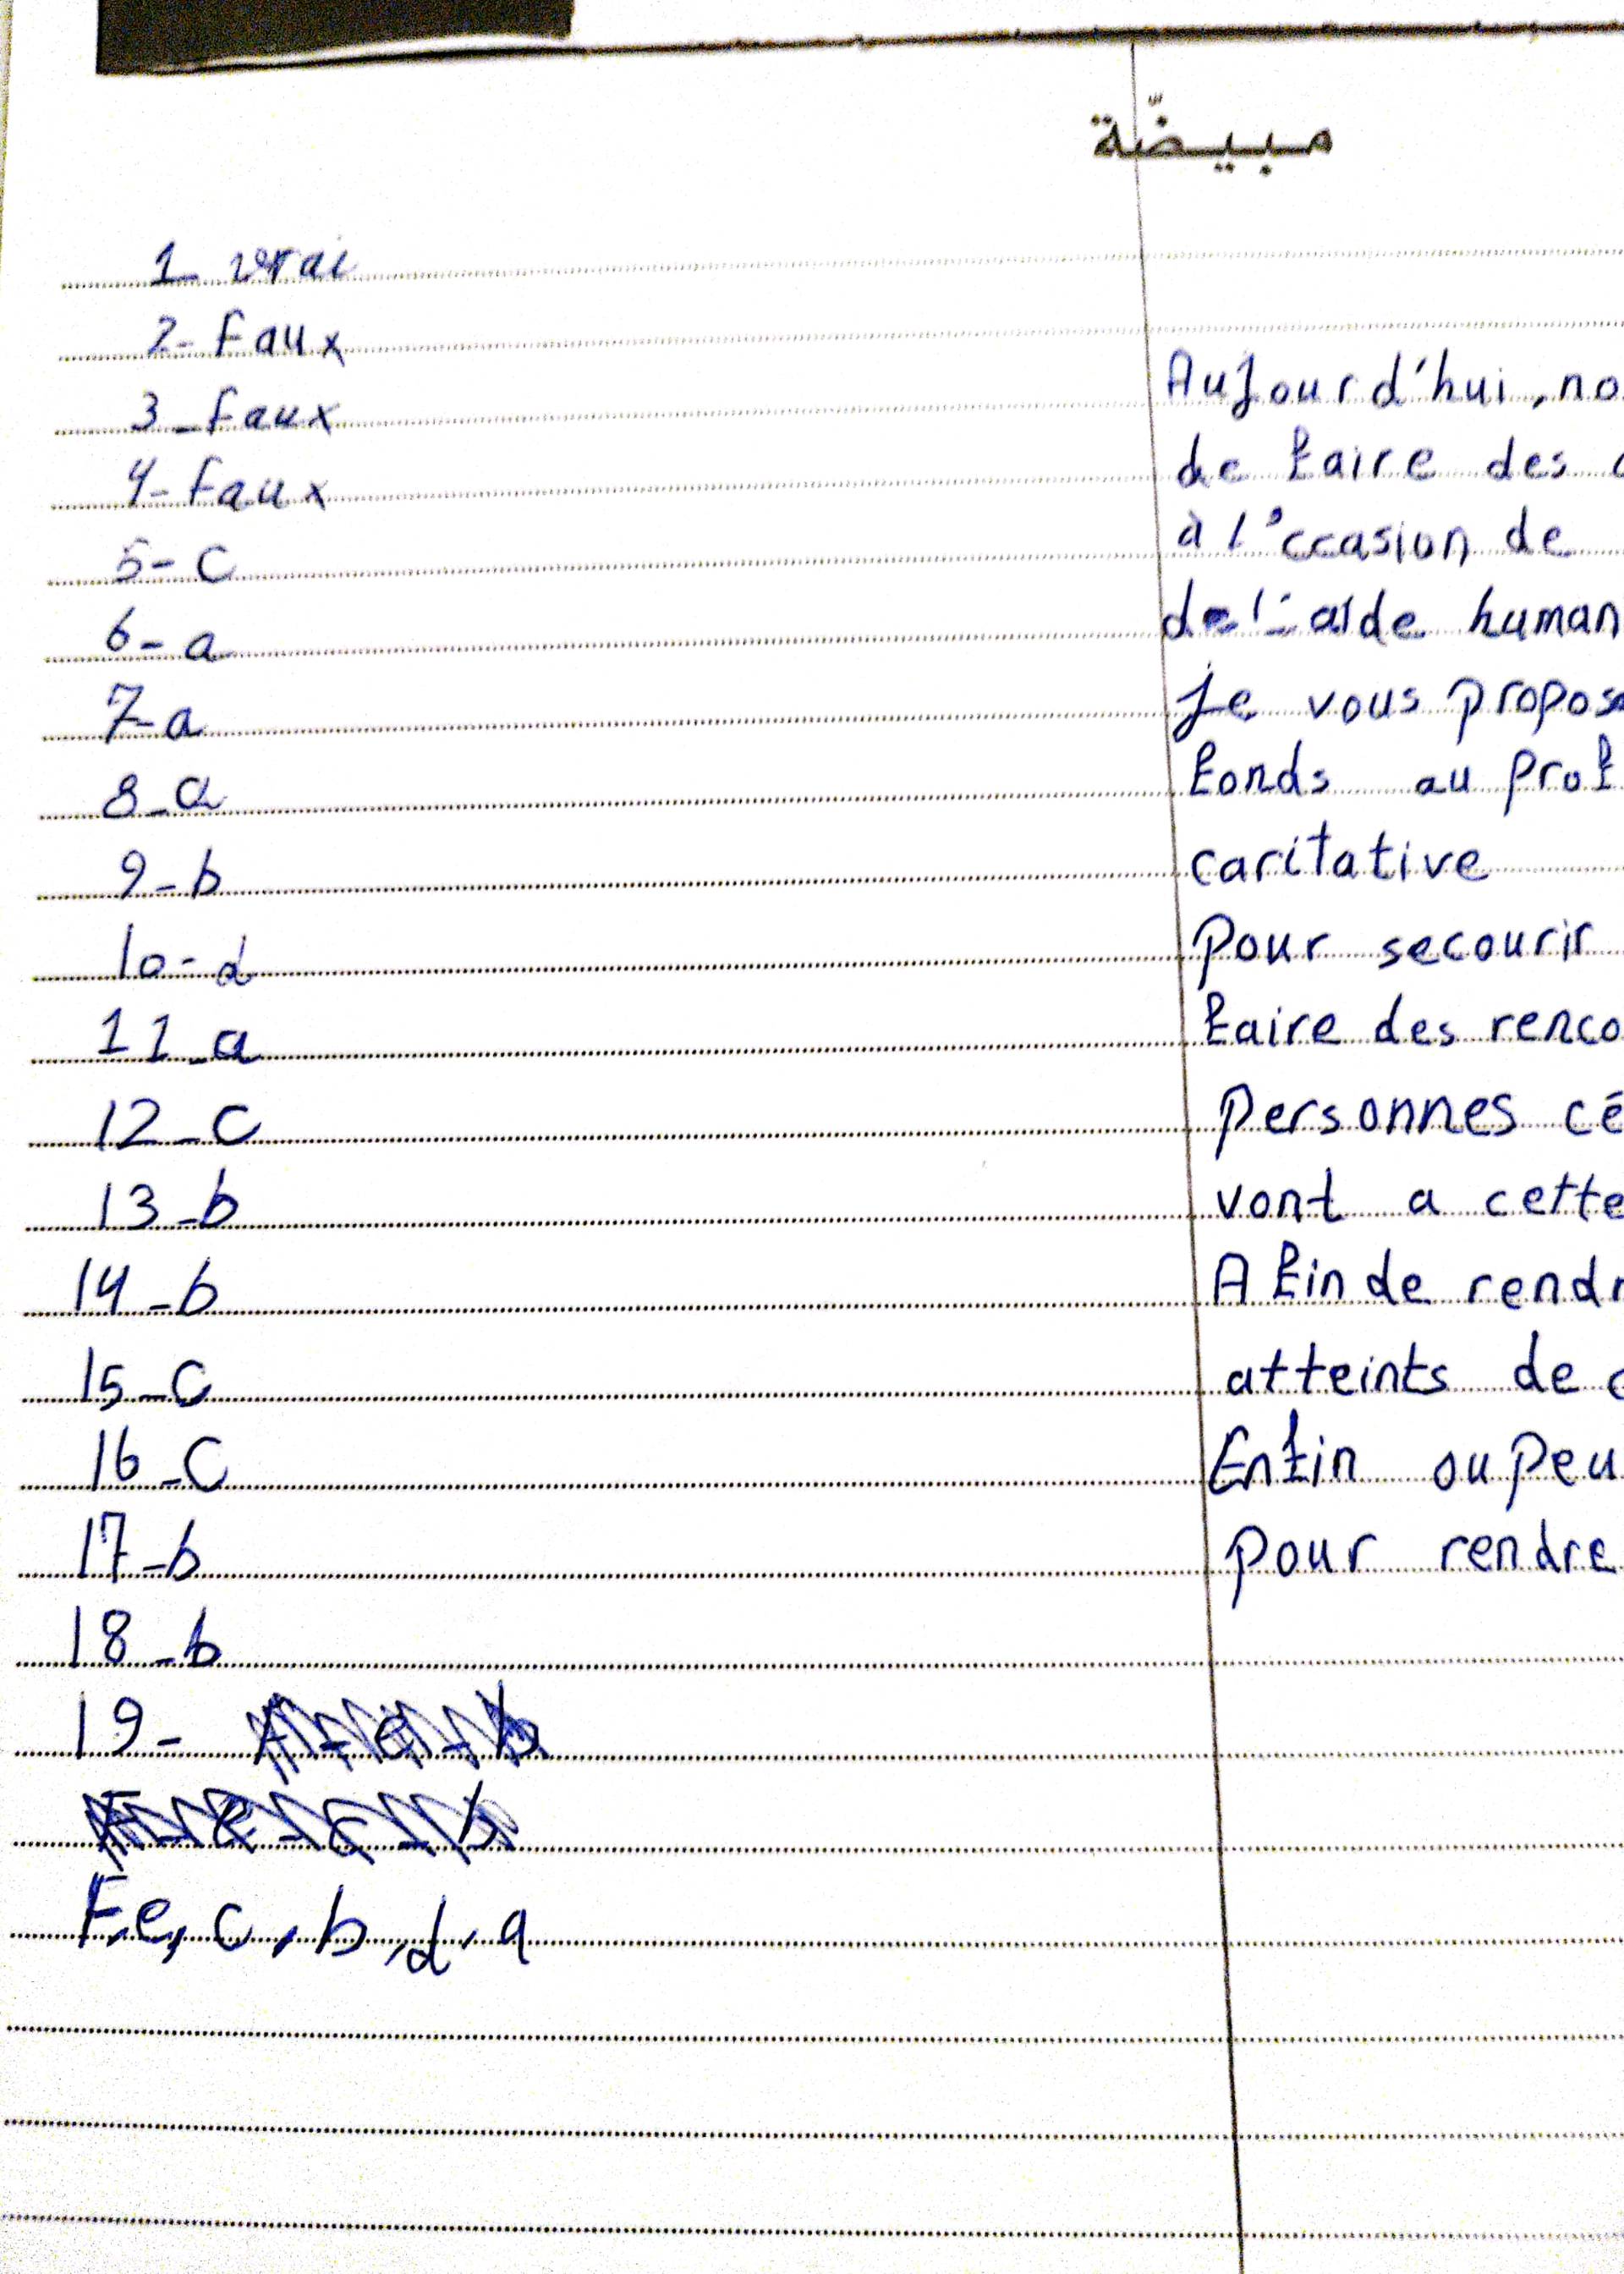 مبيضّة
1- vrai
2- Faux
3- Faux
4- Faux
5- c
6- a
7- a
8- a
9- b
10- d
11- a
12- c
13- b
14- b
15- c
16- c
17- b
18- b
19-
F, e, c, b, d, a
Aujourd'hui, no
de faire des
à l'occasion de
de l'aide human
Je vous propos
fonds au prof
caritative
Pour secourir
faire des renco
personnes cé
vont a cette
Afin de rendr
atteints de
Enfin ou peu
pour rendre